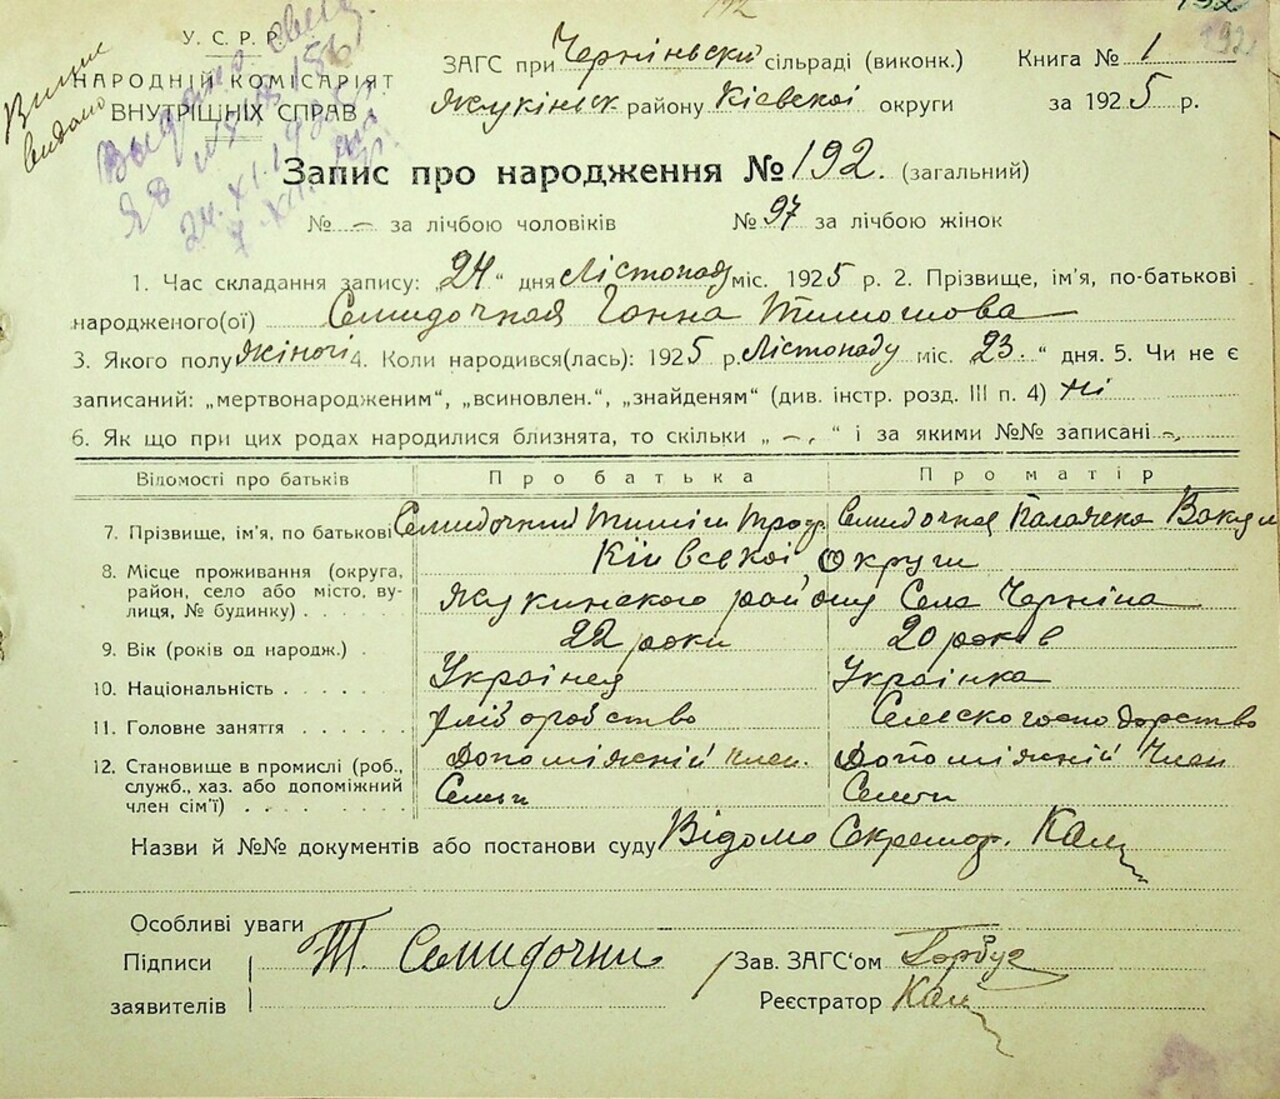 192
У. С. Р. Р.
НАРОДНІЙ КОМІСАРІЯТ
ВНУТРІШНІХ СПРАВ
Видано
24. XI. 192
ЗАГС при Черніньскй сільраді (виконк.)
Жукіньск району Кіевскоі округи
Книга № 1
за 1925 р.
Запис про народження № 192. (загальний)
№ — за лічбою чоловіків № 97 за лічбою жінок
1. Час складання запису: „24“ дня Лістопаду міс. 1925 р. 2. Прізвище, ім’я, по-батькові
народженого(ої) Семидочная Ганна Тимошова
3. Якого полу жіночі 4. Коли народився(лась): 1925 р. Лістопаду міс. 23.“ дня. 5. Чи не є
записаний: „мертвонародженим“, „всиновлен.“, „знайденям“ (див. інстр. розд. III п. 4) ні
6. Як що при цих родах народилися близнята, то скільки „ –, “ і за якими №№ записані –,
Відомості про батьків Про батька Про матір
7. Прізвище, ім’я, по батькові Семидочний Тиміш Семидочная Палажка
8. Місце проживання (округа, район, село або місто, вулиця, № будинку) . . . . Київськоі Округи
Жукинского району Села Черніна
9. Вік (років од народж.) . 22 роки 20 років
10. Національність . . . . . Українец Українка
11. Головне заняття . . . . . . хліборобство Сельскогосподарство
12. Становище в промислі (роб., служб., хаз. або допоміжний член сім’ї) . . . . . Допоміжній член. Семьи Допоміжній Член Семьи
Назви й №№ документів або постанови суду Відомо Секретар.
Особливі уваги
Підписи
заявителів
Т. Семидочни
Зав. ЗАГС‘ом Горбуз
Реєстратор